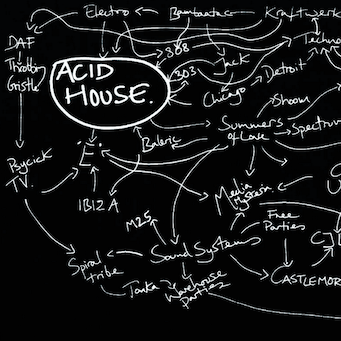 Electro
Bambaataa
Kraftwerk
DAF
Throbbing
Gristle
ACID
HOUSE.
303
Jack
Techno
Detroit
Chicago
Shoom
Summers
of Love
Spectrum
Balearic
Psychick
TV.
"E"
IBIZA
Media
Hysteria
M25
Free
Parties
Sound Systems
Spiral
tribe
Tonka
Warehouse
Parties
CASTLEMOR